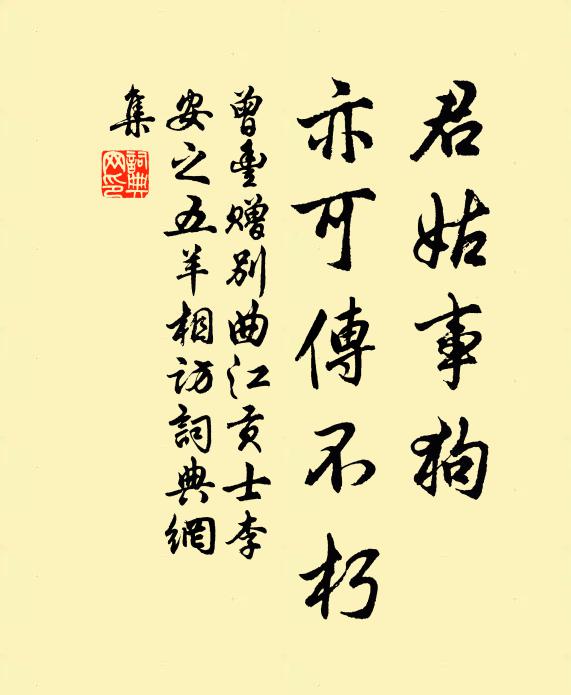 君姑事狗
亦可傳不朽
曾豊贈別曲江贡士李
安之五羊相访詞典網
集
詞典
网印